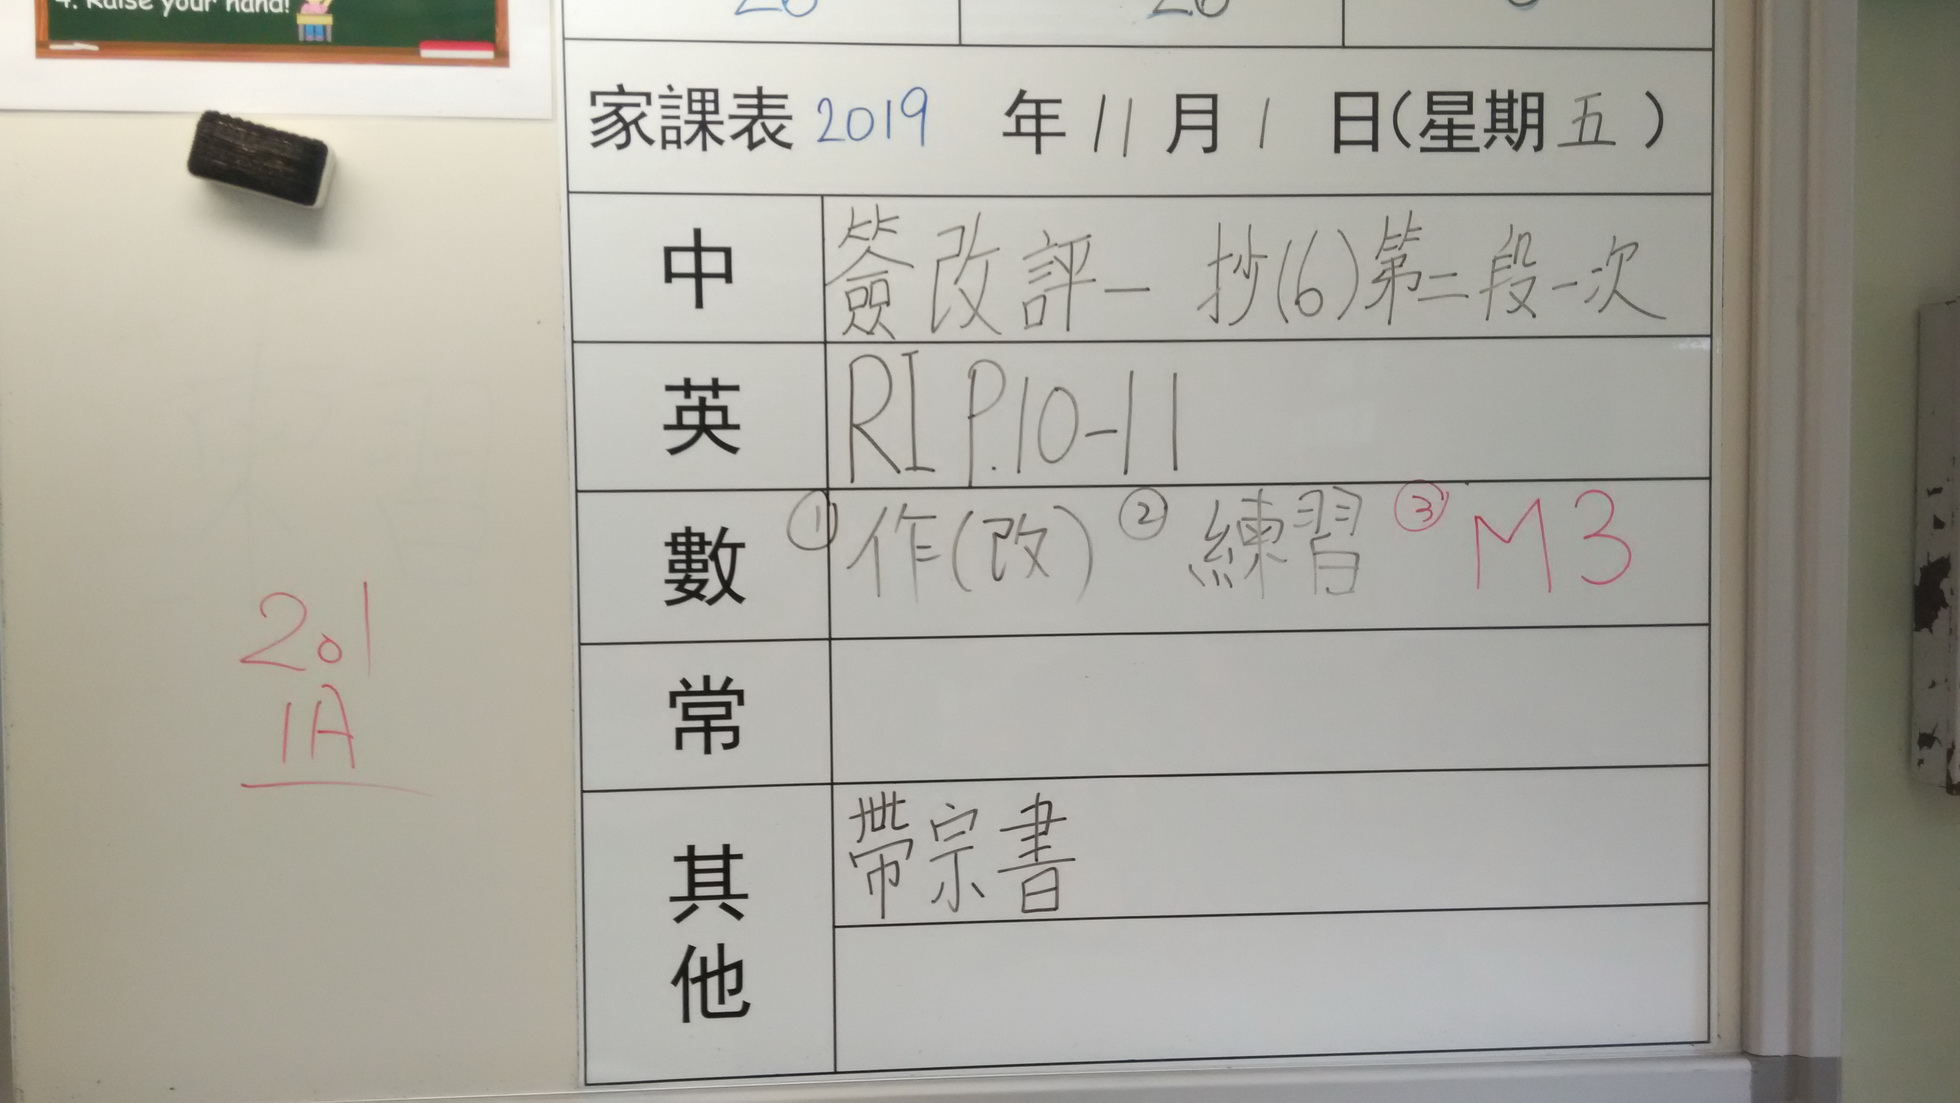 4. Raise your hand!
家課表 2019 年 11 月 1 日(星期五)
中 簽改評一 抄(6)第二段一次
英 RI P.10-11
數 ①作(改) ②練習 ③M3
常
其他 帶宗書
201
1A